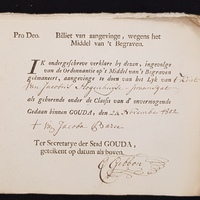 Pro Deo. Billiet van aangevinge, wegens het
Middel van 't Begraven.
IK ondergeschreve verklare by dezen, ingevolge
van de Ordonnantie op 't Middel van 't Begraven
geëmaneert, aangevinge te doen van het Lyk van
my Jacobus
als gehorende onder de Classis van d'onvermogende
Gedaan binnen GOUDA, den 22 November 1802
+ my Jacoba
Ter Secretarye der Stad GOUDA,
getekent op datum als boven.